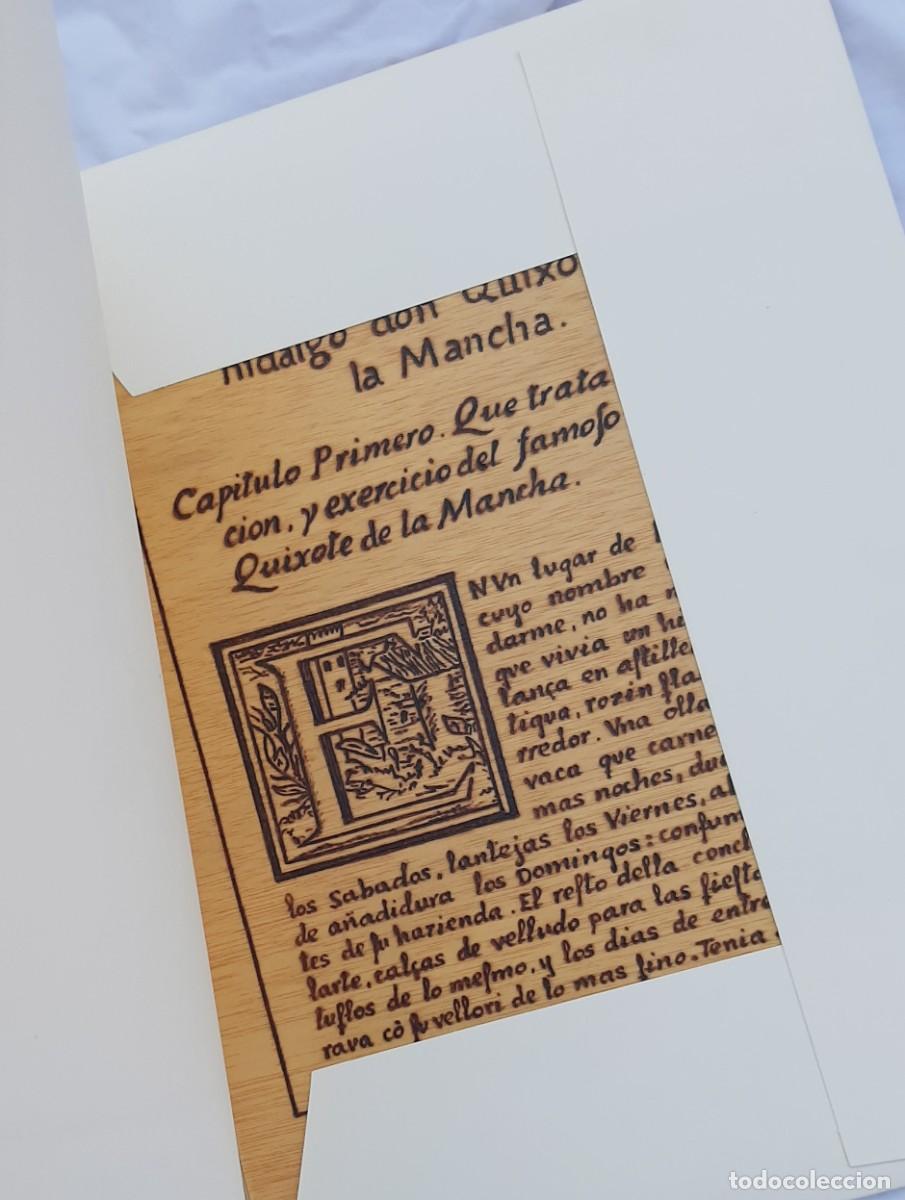 hidalgo don Quixo
la Mancha.
Capitulo Primero. Que trata
cion, y exercicio del famoſo
Quixote de la Mancha.
EN Vn lugar de
cuyo nombre
darme, no ha
que vivia un hi
lança en aſtille
tigua, rozin fla
rredor. Vna olla
vaca que carne
mas noches, due
los Sabados, lantejas los Viernes, al
de añadidura los Domingos: conſum
tes de ſu hazienda. El reſto della conc
larte, calças de velludo para las fieſta
tuflos de lo meſmo, y los dias de entre
rava cõ ſu vellori de lo mas fino. Tenia
todocoleccion